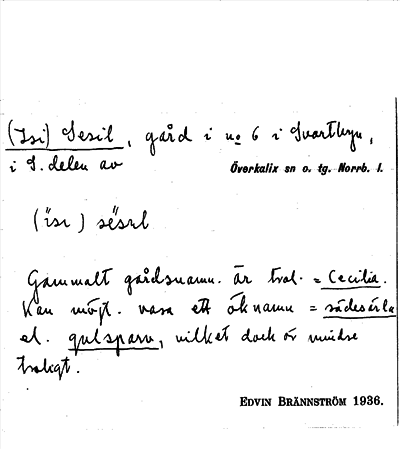 (Isi) Sesil, gård i no 6 i Svartbyn,
i S. delen av Överkalix sn o. tg. Norrb. l.
Gammalt gårdsnamn. Är trol. = Cecilia.
Kan möjl. vara ett öknamn = sädesärla
el. gulsparv, vilket dock är mindre
troligt.
EDVIN BRÄNNSTRÖM 1936.